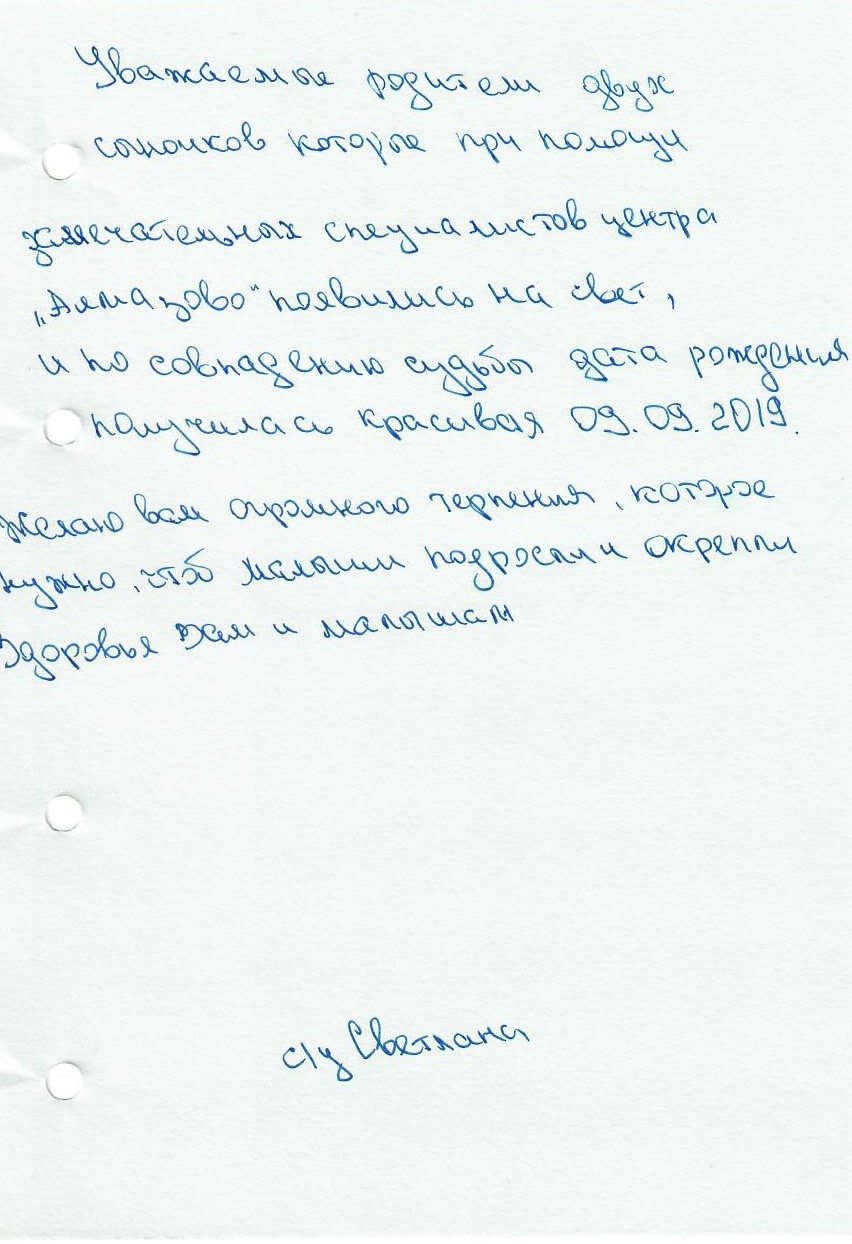 Уважаемые родители двух
сыночков которые при помощи
замечательных специалистов центра
„Алмазово" появились на свет,
и по совпадению судьбы дата рождения
получилась красивая 09.09.2019.
Желаю вам огромного терпения, которое
нужно, чтоб малыши подросли и окрепли
Здоровья Вам и малышам
с/у Светлана